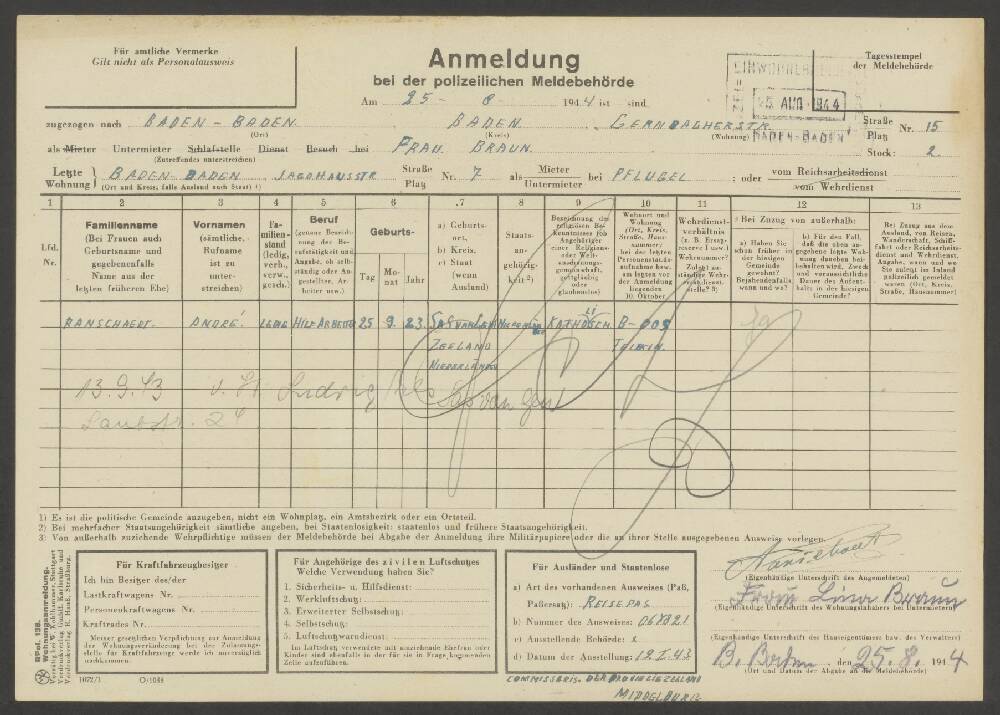 Für amtliche Vermerke
Gilt nicht als Personalausweis
Anmeldung
bei der polizeilichen Meldebehörde
Tagesstempel
der Meldebehörde
25 AUG 1944
BADEN-BADEN
Am 25 - 8 1944 ist sind
zugezogen nach BADEN - BADEN BADEN GERNBACHERSTR. Straße Platz Nr. 15
(Ort) (Kreis) (Wohnung)
als Mieter Untermieter Schlafstelle Dienst Besuch bei FRAU. BRAUN. Stock: 2.
(Zutreffendes unterstreichen)
Letzte Wohnung BADEN-BADEN JAGDHAUSSTR Straße Platz Nr. 7 als Mieter Untermieter bei PFLUGEL ; oder vom Reichsarbeitsdienst vom Wehrdienst
(Ort und Kreis; falls Ausland auch Staat) ¹)
1 2 3 4 5 6 7 8 9 10 11 12 13
Lfd. Nr.
Familienname
(Bei Frauen auch Geburtsname und gegebenenfalls Name aus der letzten früheren Ehe)
Vornamen
(sämtliche, Rufname ist zu unterstreichen)
Familienstand
(ledig, verh., verw., gesch.)
Beruf
(genaue Bezeichnung der Berufstätigkeit und Angabe, ob selbständig oder Angestellter, Arbeiter usw.)
Geburts-
Tag Monat Jahr
a) Geburtsort,
b) Kreis,
c) Staat
(wenn Ausland)
Staatsangehörigkeit ²)
Bezeichnung des religiösen Bekenntnisses (ob Angehöriger einer Religions- oder Weltanschauungsgemeinschaft, gottgläubig oder glaubenslos)
Wohnort und Wohnung (Ort, Kreis, Straße, Hausnummer) bei der letzten Personenstandsaufnahme bzw. am letzten der Anmeldung liegenden 10. Oktober
Wehrdienstverhältnis
(z. B. Ersatzreserve I usw.)
Wehrnummer?
Zuletzt zuständige Wehrersatzdienststelle? ³)
Bei Zuzug von außerhalb:
a) Haben Sie schon früher in der hiesigen Gemeinde gewohnt? Bejahendenfalls wann und wo?
b) Für den Fall, daß die oben angegebene letzte Wohnung daneben beibehalten wird, Zweck und voraussichtliche Dauer des Aufenthalts in der hiesigen Gemeinde?
Bei Zuzug aus dem Ausland, von Reisen, Wanderschaft, Schiffahrt oder Reichsarbeitsdienst und Wehrdienst. Angabe, wann und wo Sie zuletzt im Inland polizeilich gemeldet waren (Ort, Kreis, Straße, Hausnummer)
RANSCHAERT. ANDRÉ. LEDIG HILFARBEITER 25 9. 23 SAS VAN GENT KATHOLISCH B-OOS
ZEELAND
NIEDERLANDE
13.9.43 v. Ludwig Sas van Gent
1) Es ist die politische Gemeinde anzugeben, nicht ein Wohnplatz, ein Amtsbezirk oder ein Ortsteil.
2) Bei mehrfacher Staatsangehörigkeit sämtliche angeben, bei Staatenlosigkeit: staatenlos und frühere Staatsangehörigkeit.
3) Von außerhalb zuziehende Wehrpflichtige müssen der Meldebehörde bei Abgabe der Anmeldung ihre Militärpapiere oder die an ihrer Stelle ausgegebenen Ausweise vorlegen.
RPol. 138.
Wohnungsanmeldung.
Verlag von W. Kohlhammer, Stuttgart
Für Kraftfahrzeugbesitzer
Ich bin Besitzer des/der
Lastkraftwagens Nr.
Personenkraftwagens Nr.
Kraftrades Nr.
Meiner gesetzlichen Verpflichtung zur Anmeldung der Wohnungsveränderung bei der Zulassungsstelle für Kraftfahrzeuge werde ich unverzüglich nachkommen.
1072/1
Für Angehörige des zivilen Luftschutzes
Welche Verwendung haben Sie?
1. Sicherheits- u. Hilfsdienst:
2. Werkluftschutz:
3. Erweiterter Selbstschutz:
4. Selbstschutz:
5. Luftschutzwarndienst:
Im Luftschutz verwendete mit anziehende Ehefrau oder Kinder sind ebenfalls in der für sie in Frage kommenden Zeile aufzuführen.
Für Ausländer und Staatenlose
a) Art des vorhandenen Ausweises (Paß, Paßersatz): REISEPAS
b) Nummer des Ausweises: 067821
c) Ausstellende Behörde: x
d) Datum der Ausstellung: 12 I. 43
COMMISSARIS. DER PROVINCIE ZEELAND
MIDDELBURG
Ranschaert
(Eigenhändige Unterschrift des Angemeldeten)
Frau Luise Braun
(Eigenhändige Unterschrift des Wohnungsinhabers bei Untermietern)
(Eigenhändige Unterschrift des Hauseigentümers bzw. des Verwalters)
B. Baden, den 25. 8. 1944
(Ort und Datum der Abgabe an die Meldebehörde)